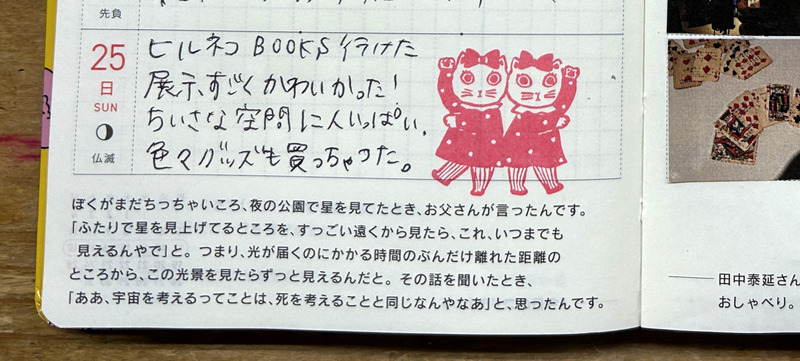 先負
25
日
SUN
仏滅
ヒルネコ BOOKS 行けた
展示、すごくかわいかった!
ちいさな空間に人いっぱい。
色々グッズも買っちゃった。
ぼくがまだちっちゃいころ、夜の公園で星を見てたとき、お父さんが言ったんです。
「ふたりで星を見上げてるところを、すっごい遠くから見たら、これ、いつまでも
見えるんやで」と。つまり、光が届くのにかかる時間のぶんだけ離れた距離の
ところから、この光景を見たらずっと見えるんだと。その話を聞いたとき、
「ああ、宇宙を考えるってことは、死を考えることと同じなんやなあ」と、思ったんです。
——田中泰延さん
おしゃべり。